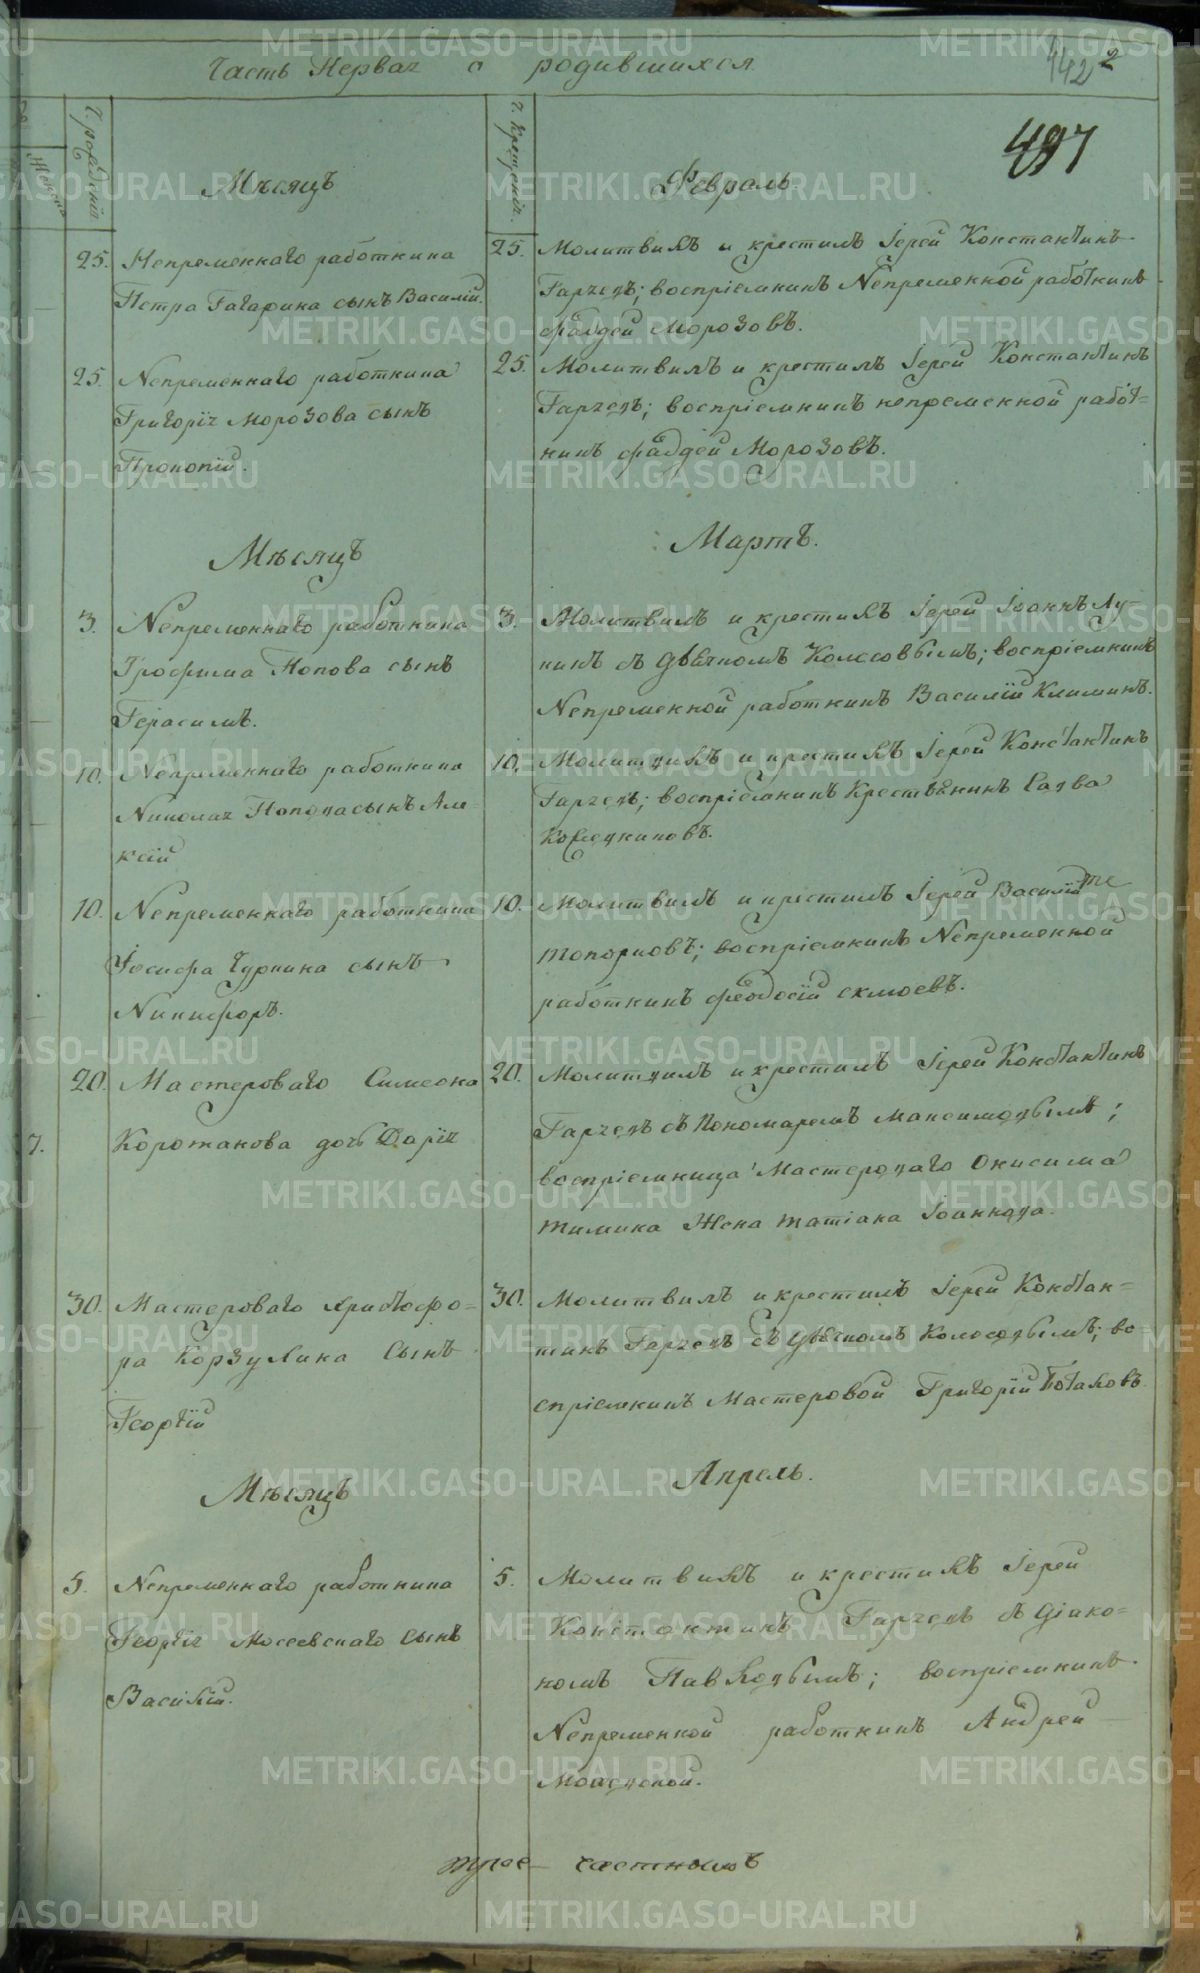 Часть Первая о родившихся
442 2
497
Женска
Ч. рожденiя
Ч. крещенiя.
Мѣсяцъ Февраль.
25. Непременнаго работника
Петра Гагарина сынъ Василiй.
25. Молитвилъ и крестилъ Iерей Константинъ
воспрiемникъ Непременной работникъ
Фаддей Морозовъ.
25. Непременнаго работника
Григорiя Морозова сынъ
Прокопiй.
25. Молитвилъ и крестилъ Iерей Константинъ
воспрiемникъ непременной работ=
никъ Фаддей Морозовъ.
Мѣсяцъ Мартъ.
3. Непременнаго работника
Трофима Попова сынъ
Герасимъ.
3. Молитвилъ и крестилъ Iерей Iоаннъ Лу-
кинъ съ Дьячкомъ Колосовымъ; воспрiемникъ
Непременной работникъ Василiй Климинъ.
10. Непременнаго работника
Николая Попова сынъ Але-
ксiй
10. Молитвилъ и крестилъ Iерей Константинъ
воспрiемникъ Крестьянинъ Савва
10. Непременнаго работника
Iосифа сынъ
Никифоръ.
10. Молитвилъ и крестилъ Iерей Василiй
Топорковъ; воспрiемникъ Непременной
работникъ Феодосiй
20. Мастероваго Симеона
Коротакова дочь Дарiя
7.
20. Молитвилъ и крестилъ Iерей Константинъ
съ Пономаремъ Максимовымъ;
воспрiемница Мастероваго Онисима
Жена Татiана Iоаннова.
30. Мастероваго Христофо=
ра Корзулина Сынъ
Георгiй
30. Молитвилъ и крестилъ Iерей Констан=
тинъ съ Дьячкомъ Колосовымъ; во-
спрiемникъ Мастеровой Григорiй
Мѣсяцъ Апрель.
5. Непременнаго работника
Георгiя Мосеевскаго Сынъ
Василiй.
5. Молитвилъ и крестилъ Iерей
Константинъ съ Дiако=
номъ Павловымъ; воспрiемникъ
Непременной работникъ Андрей
METRIKI.GASO-URAL.RU